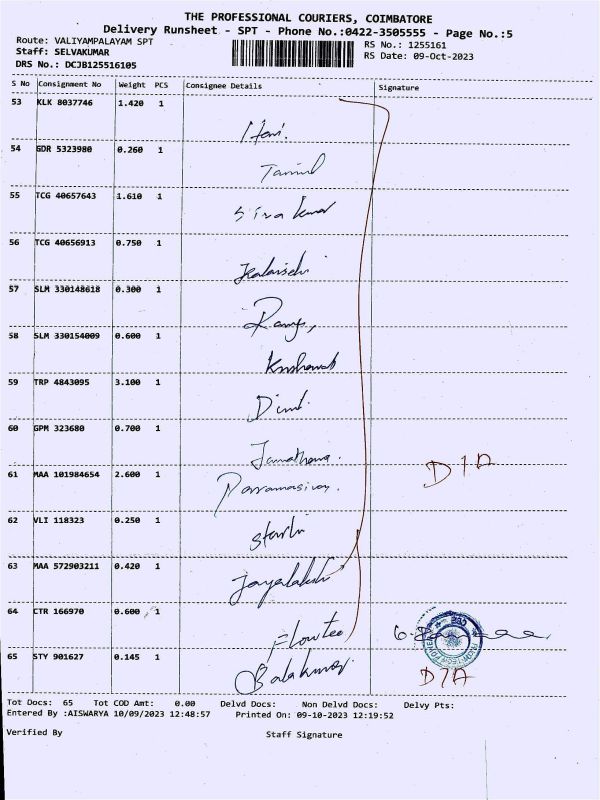 THE PROFESSIONAL COURIERS, COIMBATORE
Delivery Runsheet - SPT - Phone No.:0422-3505555 - Page No.:5
Route: VALIYAMPALAYAM SPT
RS No.: 1255161
Staff: SELVAKUMAR
RS Date: 09-Oct-2023
DRS No.: DCJB125516105
S No Consignment No Weight PCS Consignee Details Signature
53 KLK 8037746 1.420 1
Hari.
54 GDR 5323980 0.260 1
Tamil
55 TCG 40657643 1.610 1
Siva kumar
56 TCG 40656913 0.750 1
Kalaiselvi
57 SLM 330148618 0.300 1
58 SLM 330154009 0.600 1
59 TRP 4843095 3.100 1
60 GPM 323680 0.700 1
61 MAA 101984654 2.600 1
Parramasivam.
62 VLI 118323 0.250 1
63 MAA 572903211 0.420 1
Jayalakshi
64 CTR 166970 0.600 1
Flowtec
65 STY 901627 0.145 1
Balakumar
Tot Docs: 65 Tot COD Amt: 0.00 Delvd Docs: Non Delvd Docs: Delvy Pts:
Entered By :AISWARYA 10/09/2023 12:48:57 Printed On: 09-10-2023 12:19:52
Verified By Staff Signature